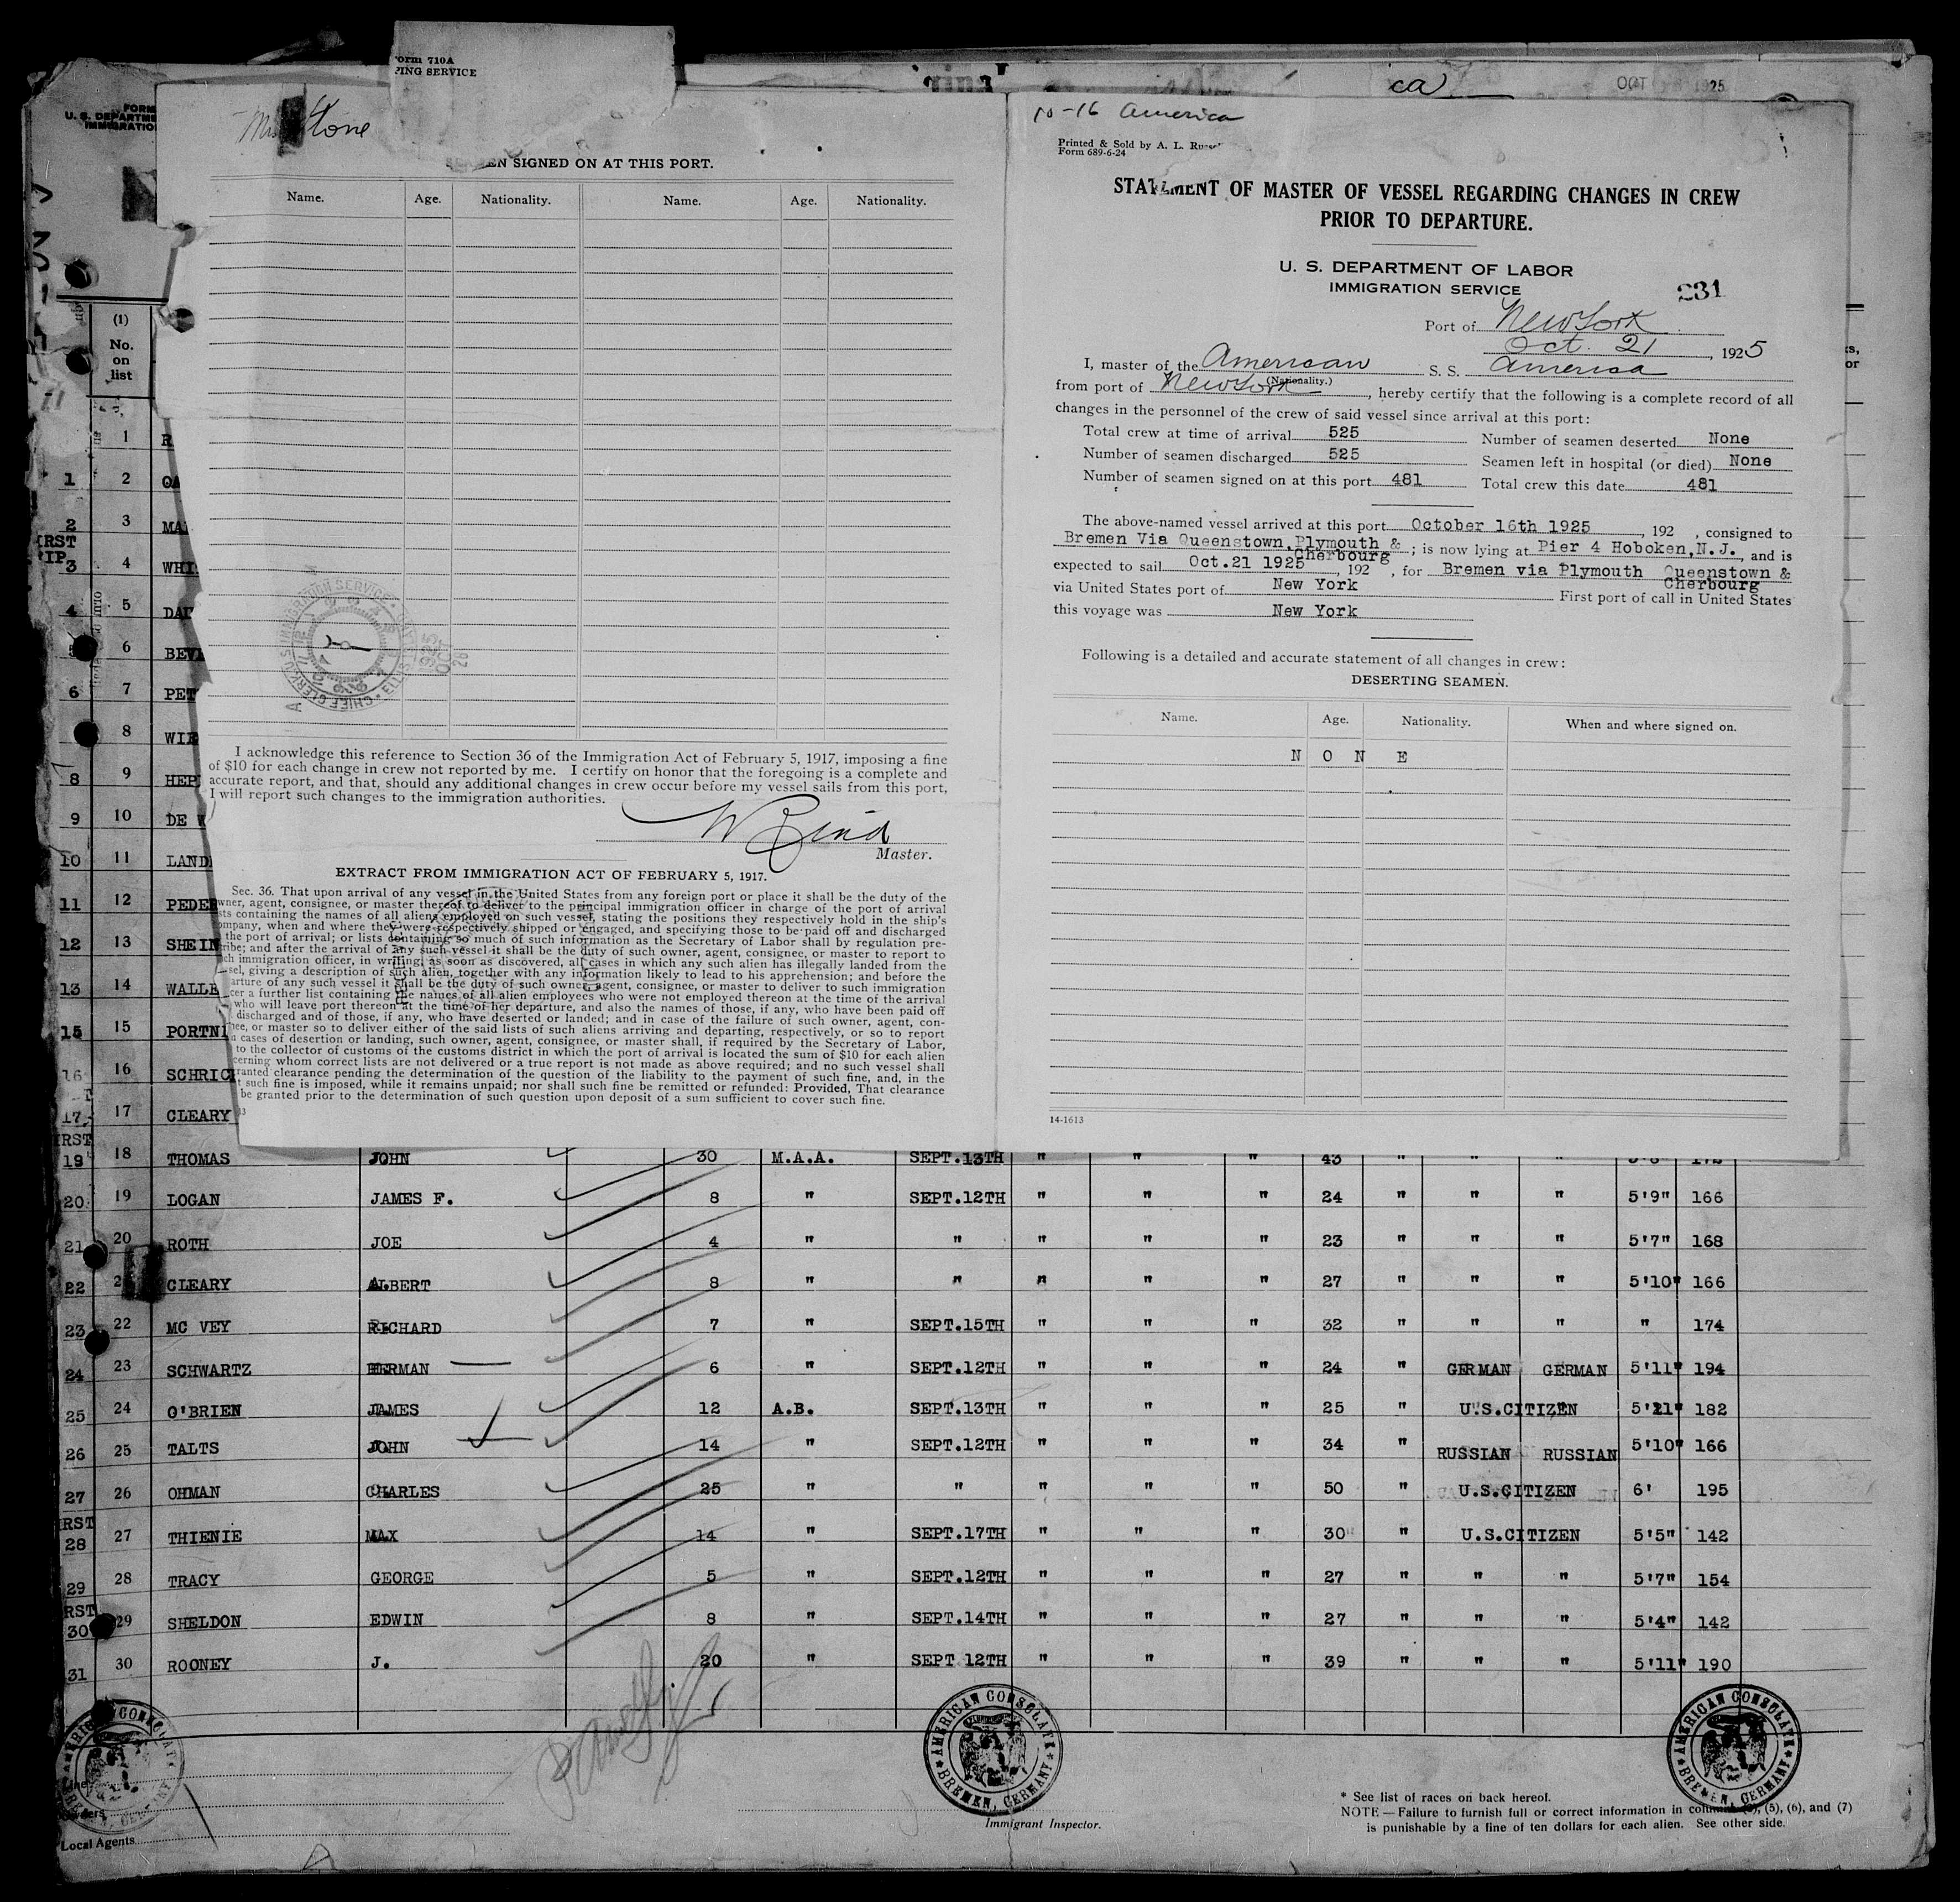 Form 710A
PING SERVICE
FORM
U. S. DEPARTME
IMMIGRATIO
ca
OCT 1925
Stone
EN SIGNED ON AT THIS PORT.
Name. Age. Nationality. Name. Age. Nationality.
I acknowledge this reference to Section 36 of the Immigration Act of February 5, 1917, imposing a fine
of $10 for each change in crew not reported by me. I certify on honor that the foregoing is a complete and
accurate report, and that, should any additional changes in crew occur before my vessel sails from this port,
I will report such changes to the immigration authorities.
Master.
EXTRACT FROM IMMIGRATION ACT OF FEBRUARY 5, 1917.
Sec. 36. That upon arrival of any vessel in the United States from any foreign port or place it shall be the duty of the
wner, agent, consignee, or master thereof to deliver to the principal immigration officer in charge of the port of arrival
sts containing the names of all aliens employed on such vessel, stating the positions they respectively hold in the ship's
ompany, when and where they were respectively shipped or engaged, and specifying those to be paid off and discharged
the port of arrival; or lists containing so much of such information as the Secretary of Labor shall by regulation pre-
ribe; and after the arrival of any such vessel it shall be the duty of such owner, agent, consignee, or master to report to
ch immigration officer, in writing, as soon as discovered, all cases in which any such alien has illegally landed from the
sel, giving a description of such alien, together with any information likely to lead to his apprehension; and before the
arture of any such vessel it shall be the duty of such owner, agent, consignee, or master to deliver to such immigration
cer a further list containing the names of all alien employees who were not employed thereon at the time of the arrival
who will leave port thereon at the time of her departure, and also the names of those, if any, who have been paid off
discharged and of those, if any, who have deserted or landed; and in case of the failure of such owner, agent, con-
nee, or master so to deliver either of the said lists of such aliens arriving and departing, respectively, or so to report
cases of desertion or landing, such owner, agent, consignee, or master shall, if required by the Secretary of Labor,
to the collector of customs of the customs district in which the port of arrival is located the sum of $10 for each alien
cerning whom correct lists are not delivered or a true report is not made as above required; and no such vessel shall
ranted clearance pending the determination of the question of the liability to the payment of such fine, and, in the
t such fine is imposed, while it remains unpaid; nor shall such fine be remitted or refunded: Provided, That clearance
be granted prior to the determination of such question upon deposit of a sum sufficient to cover such fine.
10-16 America
Printed & Sold by A. L. Russel
Form 689-6-24
STATEMENT OF MASTER OF VESSEL REGARDING CHANGES IN CREW
PRIOR TO DEPARTURE.
U. S. DEPARTMENT OF LABOR
IMMIGRATION SERVICE
231
Port of New York
Oct. 21, 1925
I, master of the American S. S. America
(Nationality.)
from port of New York, hereby certify that the following is a complete record of all
changes in the personnel of the crew of said vessel since arrival at this port:
Total crew at time of arrival 525 Number of seamen deserted None
Number of seamen discharged 525 Seamen left in hospital (or died) None
Number of seamen signed on at this port 481 Total crew this date 481
The above-named vessel arrived at this port October 16th 1925, 192 , consigned to
Bremen Via Queenstown, Plymouth & Cherbourg; is now lying at Pier 4 Hoboken, N.J., and is
expected to sail Oct.21 1925, 192 , for Bremen via Plymouth Queenstown & Cherbourg
via United States port of New York First port of call in United States
this voyage was New York
Following is a detailed and accurate statement of all changes in crew:
DESERTING SEAMEN.
Name. Age. Nationality. When and where signed on.
N O N E
14-1613
(1)
No.
on
list
1 R
1 2 OA
2 3 MA
RST
IP
3 4 WHI
4 5 DAI
5 6 BEV
6 7 PET
8 WIE
8 9 HEP
9 10 DE W
10 11 LAND
11 12 PEDER
12 13 SHEIN
13 14 WALLE
15 15 PORTNI
16 16 SCHRICK
17 17 CLEARY
RST
19 18 THOMAS JOHN 30 M.A.A. SEPT.13TH " " " 43 " " " 5'8" 172
20 19 LOGAN JAMES F. 8 " SEPT.12TH " " " 24 " " " 5'9" 166
21 20 ROTH JOE 4 " " " " " 23 " " " 5'7" 168
22 2 CLEARY ALBERT 8 " " " " " 27 " " " 5'10" 166
23 22 MC VEY RICHARD 7 " SEPT.15TH " " " 32 " " " " 174
24 23 SCHWARTZ HERMAN 6 " SEPT.12TH " " " 24 " GERMAN GERMAN 5'11" 194
25 24 O'BRIEN JAMES 12 A.B. SEPT.13TH " " " 25 " U.S.CITIZEN 182
26 25 TALTS JOHN 14 " SEPT.12TH " " " 34 " RUSSIAN RUSSIAN 5'10" 166
27 26 OHMAN CHARLES 25 " " " " " 50 " U.S.CITIZEN 6' 195
RST
28 27 THIENIE MAX 14 " SEPT.17TH " " " 30 " U.S.CITIZEN 5'5" 142
29 28 TRACY GEORGE 5 " SEPT.12TH " " " 27 " " " 5'7" 154
RST
30 29 SHELDON EDWIN 8 " SEPT.14TH " " " 27 " " " 5'4" 142
31 30 ROONEY J. 20 " SEPT 12TH " " " 39 " " " 5'11" 190
AMERICAN CONSULATE
BREMEN, GERMANY
AMERICAN CONSULATE
BREMEN, GERMANY
AMERICAN CONSULATE
BREMEN, GERMANY
Line
Owners
Local Agents
Immigrant Inspector.
* See list of races on back hereof.
NOTE — Failure to furnish full or correct information in columns (5), (6), and (7)
is punishable by a fine of ten dollars for each alien. See other side.